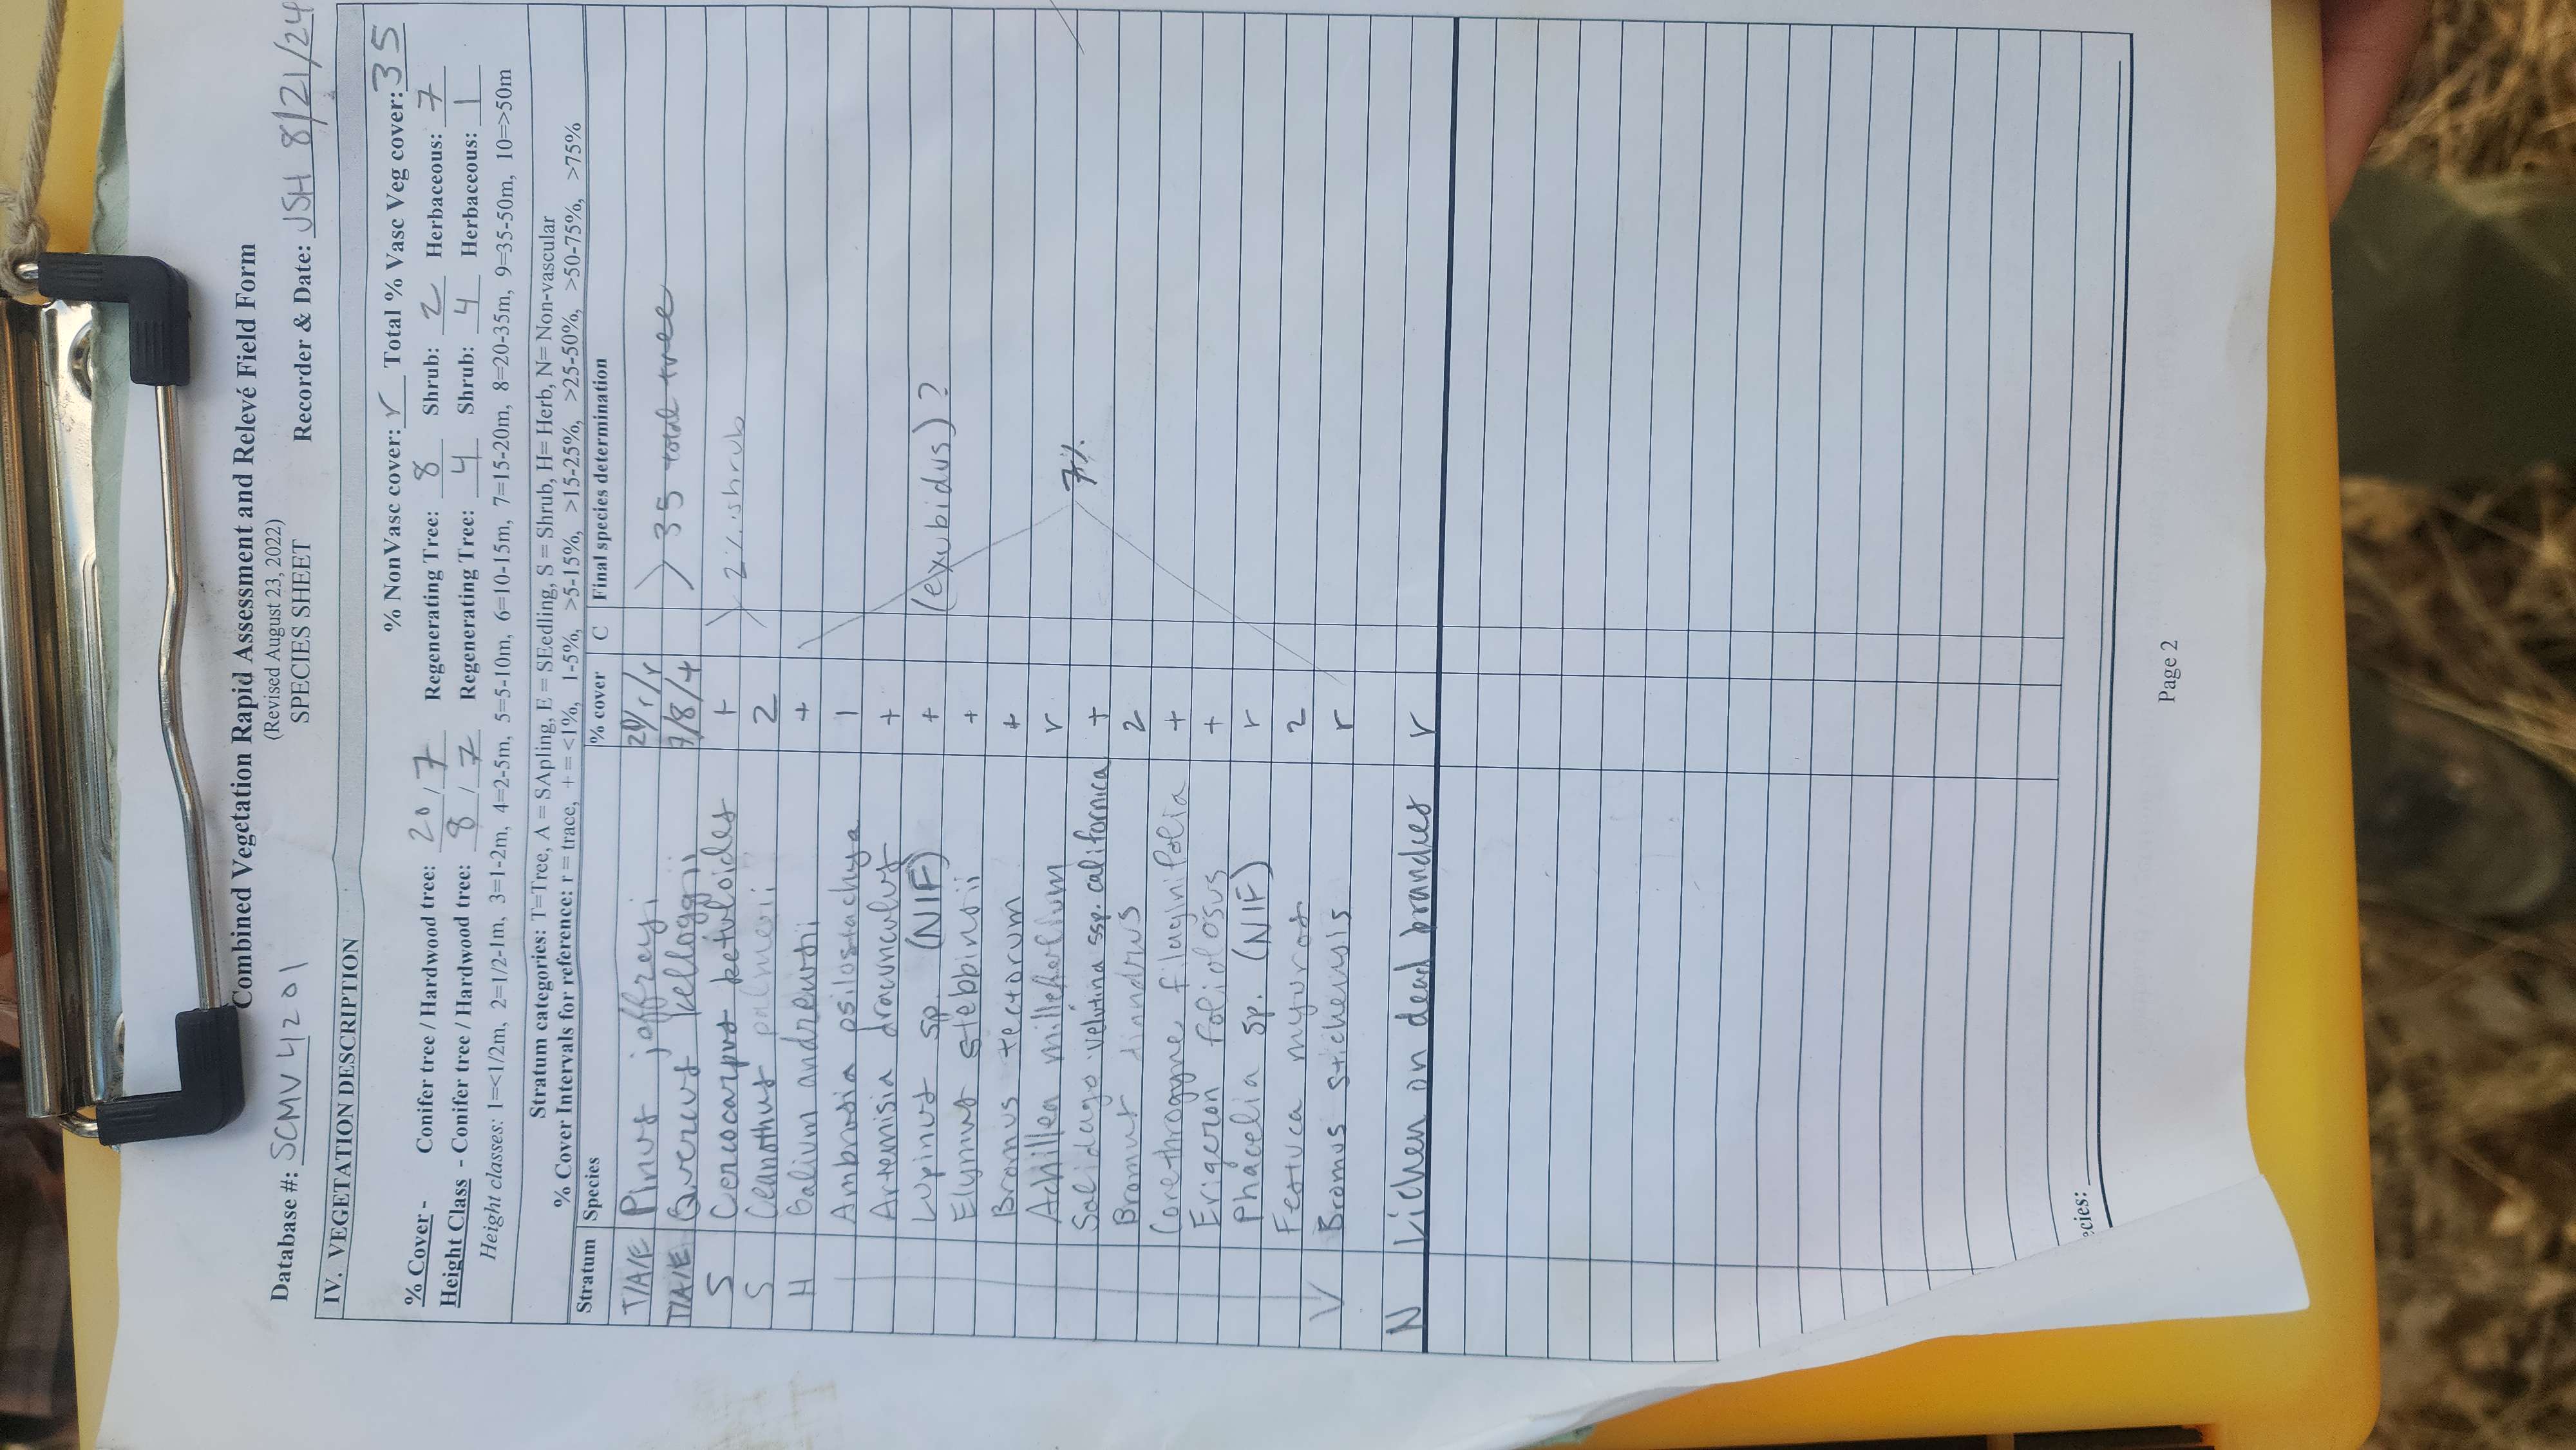 Combined Vegetation Rapid Assessment and Relevé Field Form
(Revised August 23, 2022)
Database #: SCMV4201 SPECIES SHEET Recorder & Date: JSH 8/21/24
IV. VEGETATION DESCRIPTION
% NonVasc cover: r Total % Vasc Veg cover: 35
% Cover - Conifer tree / Hardwood tree: 20 / 7 Regenerating Tree: 8 Shrub: 2 Herbaceous: 7
Height Class - Conifer tree / Hardwood tree: 8 / 7 Regenerating Tree: 4 Shrub: 4 Herbaceous: 1
Height classes: 1=<1/2m, 2=1/2-1m, 3=1-2m, 4=2-5m, 5=5-10m, 6=10-15m, 7=15-20m, 8=20-35m, 9=35-50m, 10=>50m
Stratum categories: T=Tree, A = SApling, E = SEedling, S = Shrub, H= Herb, N= Non-vascular
% Cover Intervals for reference: r = trace, + = <1%, 1-5%, >5-15%, >15-25%, >25-50%, >50-75%, >75%
Stratum Species % cover C Final species determination
T/A/E Pinus jeffreyi 20/1/r
T/A/E Quercus kelloggii 7/8/+
35 total tree
S Cercocarpus betuloides +
S Ceanothus palmeri 2
2% shrub
H Galium andrewsii +
Ambrosia psilostachya 1
Artemisia dracunculus +
Lupinus sp. (NIF) + (exubidus)?
Elymus stebbinsii +
Bromus tectorum +
Achillea millefolium r
Solidago velutina ssp. californica +
7%
Bromus diandrus 2
Corethrogyne filaginifolia +
Erigeron foliolosus +
Phacelia sp. (NIF) r
Festuca myuros 2
Bromus sitchensis r
N Lichen on dead branches r
ecies:
Page 2